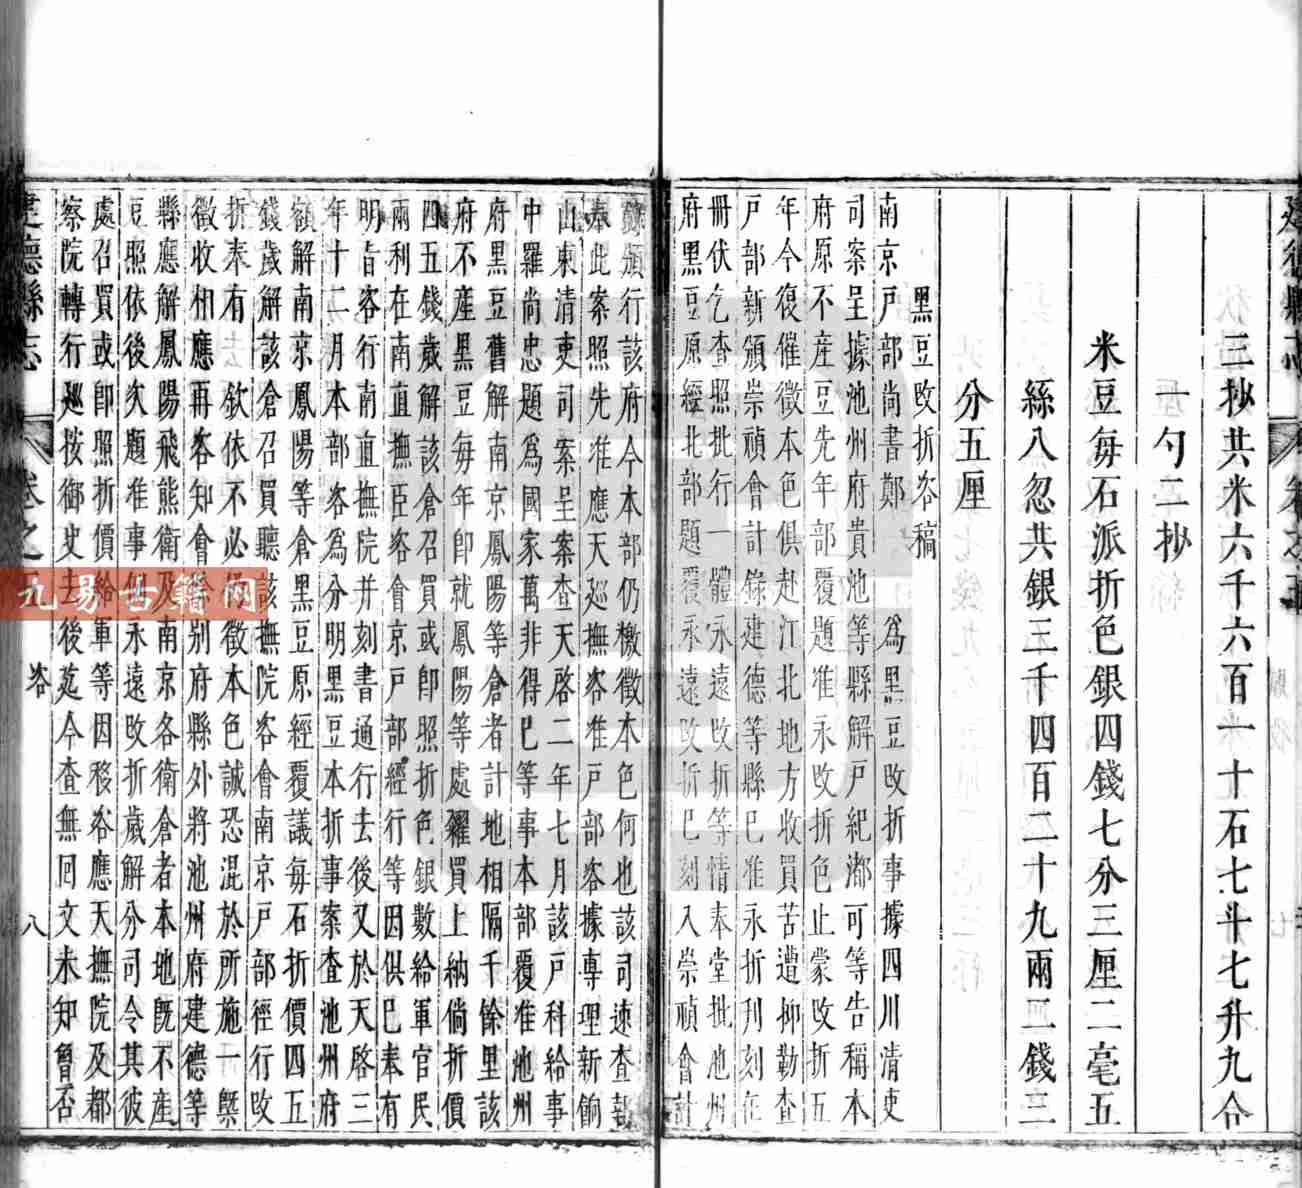 三抄共米六千六百一十石七斗七升九合
一勺二抄
米豆每石派折色銀四錢七分三厘二毫五
絲八忽共銀三千四百二十九兩二錢三
分五厘
黑豆改折咨稿
南京戶部尚書鄭 為黑豆改折事據四川清吏
司案呈據池州府貴池等縣解戶紀 可等告稱本
府原不產豆先年部覆題准永改折色止蒙改折五
年今復催徵本色俱赴江北地方收買苦遭抑勒查
戶部新頒崇禎會計錄建德等縣已准永折刊刻在
冊伏乞查照批行一體永遠改折等情奉堂批池州
府黑豆原經北部題覆永遠改折已刻入崇禎會計
錄頒行該府今本部仍檄徵本色何也該司速查報
奉此案照先准應天巡撫咨准戶部咨據專理新餉
山東清吏司案呈案查天啓二年七月該戶科給事
中羅尚忠題為國家萬非得已等事本部覆准池州
府黑豆舊解南京鳳陽等倉者計地相隔千餘里該
府不產黑豆每年即就鳳陽等處糴買上納倘折價
四五錢歲解該倉召買或即照折色銀數給軍官民
兩利在南直撫臣咨會京戶部經行等因俱已奉有
明旨咨行南直撫院并刻書通行去後又於天啓三
年十二月本部咨為分明黑豆本折事案查池州府
額解南京鳳陽等倉黑豆原經覆議每石折價四五
錢歲解該倉召買聽該撫院咨會南京戶部徑行改
折奉有 欽依不必 徵本色誠恐混於所施一槩
徵收相應再咨知會 別府縣外將池州府建德等
縣應解鳳陽飛熊衛及南京各衛倉者本地既不產
豆照依後次題准事 永遠改折歲解分司令其彼
處召買或即照折價給軍等因移咨應天撫院及都
察院轉行廵按御史去後茲今查無回文未知曾否
建德縣志 卷之五 咨 八
九易古籍网